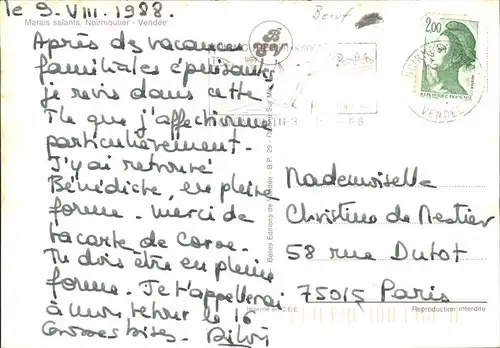 le 9.VIII.1988.
Marais salants, Noirmoutier - Vendée
Après des vacances
familiales épuisantes
je revis dans cette
île que j'affectionne
particulièrement.
J'y ai retrouvé
Bénédicte, en pleine
forme. merci de
ta carte de Corse.
Tu dois être en pleine
forme. Je t'appellerai
à mon retour le 16
Grosses bises.
Beruf
2,00
REPUBLIQUE FRANÇAISE
VENDEE
Mademoiselle
Christine de Nestier
58 rue Dutot
75015 Paris
Belles Editions de Vendée - B.P. 29
Imprimé en C.E.E.
Reproduction interdite